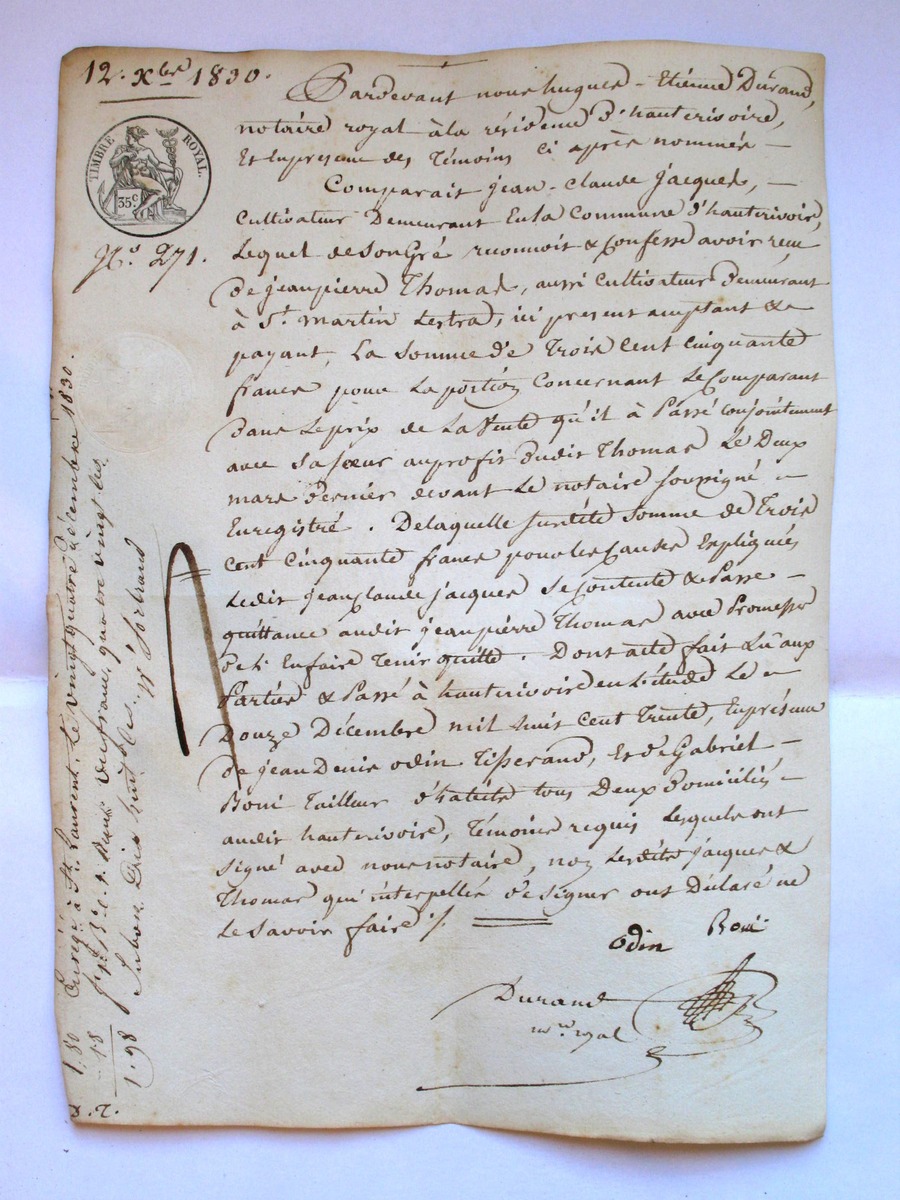 12. Xbre 1830.
TIMBRE ROYAL.
35c
No. 271.
Pardevant nous hugues - Etienne Durand,
notaire royal à la résidence d'hauterivoire,
Et En presence des Témoins Ci après nommés -
Comparait jean - Claude jacques, -
Cultivateur Demeurant En la Commune d'hauterivoire,
Lequel de Son Gré reconnoit & Confesse avoir reçu
de jean pierre Thomas, aussi Cultivateur Demeurant
à St. martin Lestrad, ici present acceptant &
payant, La Somme de Trois Cent Cinquante
francs pour La portion Concernant Le Comparant
Dans Le prix de La Vente qu'il à Passé Conjointement
avec Sa Soeur au profit Dudit Thomas Le Deux
mars Dernier devant Le notaire Soussigné -
Enregistré. De laquelle Susdite Somme de Trois
Cent Cinquante francs pour les Causes Expliquées
Ledit jean Claude jacques Se Contente & Passe -
quittance audit jean pierre Thomas avec Promesse
de L'En faire Tenir quitte. Dont acte fait Lû aux
Parties & Passé à hauterivoire en L'étude Le -
Douze Décembre mil huit Cent Trente, En présence
de jean Denis odin Tisserand, Et de Gabriel -
Boni Tailleur d'habits tous Deux Domiciliés -
audit hauterivoire, Témoins requis Lesquels ont
Signé avec nous notaire, non Lesdits jacques &
Thomas qui interpellés de Signer ont Déclaré ne
Le Savoir faire ./.
odin Boni
Durand
nre royal
Enrégé à St. Laurent. Le vingt quatre décembre 1830.
deux francs quatre vingt
dix huit
1. 80
. 18
1. 98